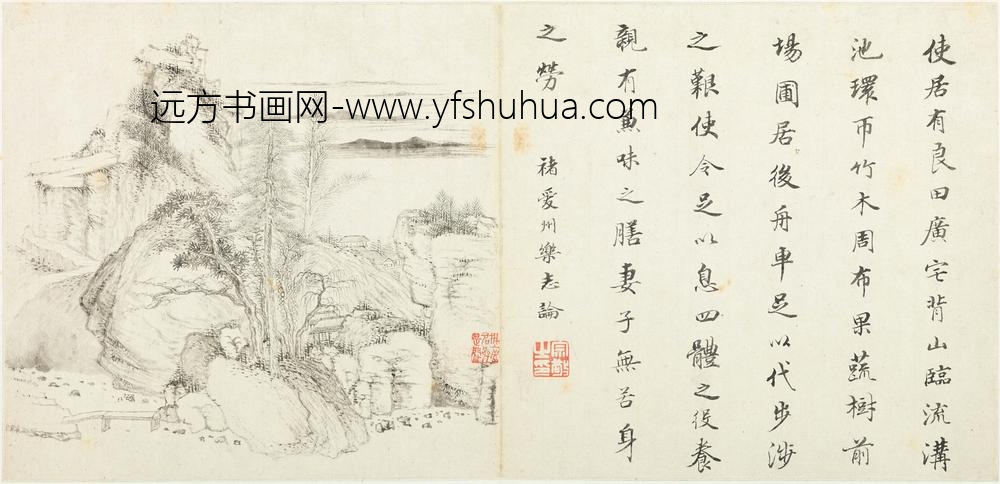 使居有良田廣宅背山臨流溝
池環帀竹木周布果蔬樹前
場圃居後舟車足以代步涉
之艱使令足以息四體之役養
親有兼味之膳妻子無苦身
之勞
褚愛州樂志論
远方书画网-www.yfshuhua.com